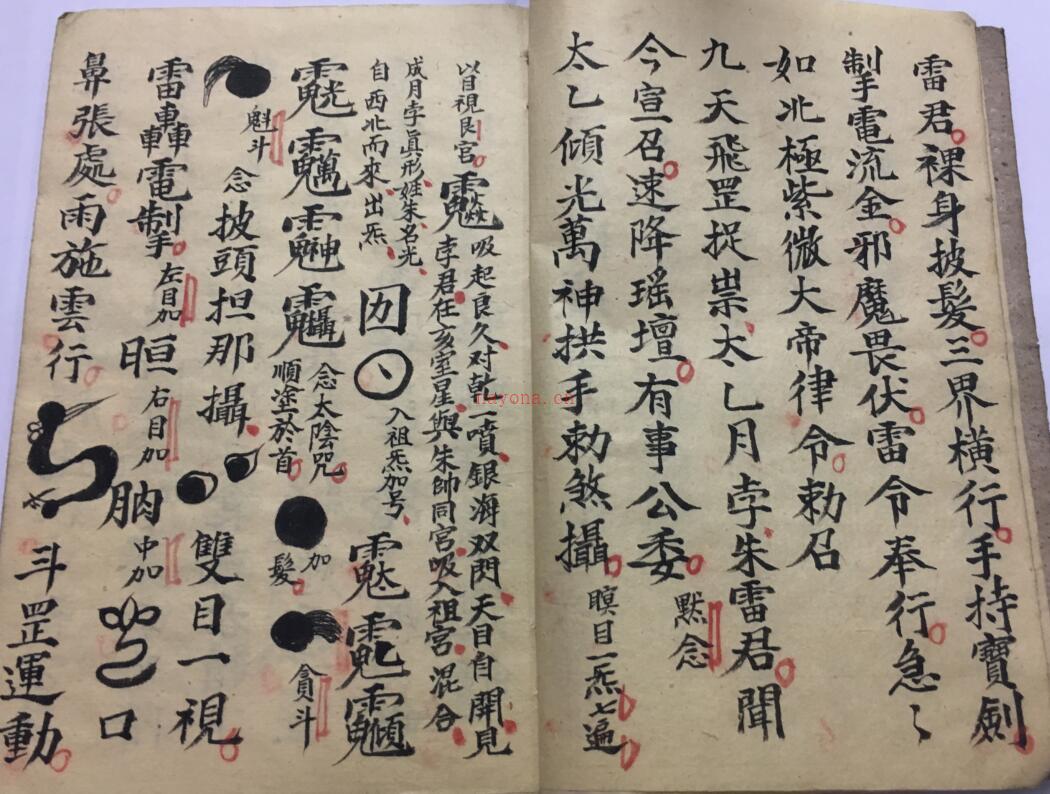 雷君。裸身披髮。三界横行。手持寳劍。
制電流金。邪魔畏伏。雷令奉行。急〻
如北極紫微大帝律令。勅召
九天飛罡捉祟大乙月孛朱雷君。聞
今宣召。速降瑶壇。有事公委。默念
太乙傾光萬神拱手勅煞攝。瞑目一炁七遍
以目視艮宮。吸起良久、对乾一噴、銀海双閃、天目自開、見
成月孛真形、姓朱、名光、孛君在亥室星、與朱帥同宮、吸入祖宮、混合、
自西北而來、出炁、囙 入祖炁加号、
念太陰咒。順塗於首 加髮 貪斗
魁斗 念披頭担那攝。雙目一視。
雷轟電掣。左目加 晅 右目加 中加 口
鼻張處。雨施雲行。斗罡運動。
nayona.cn